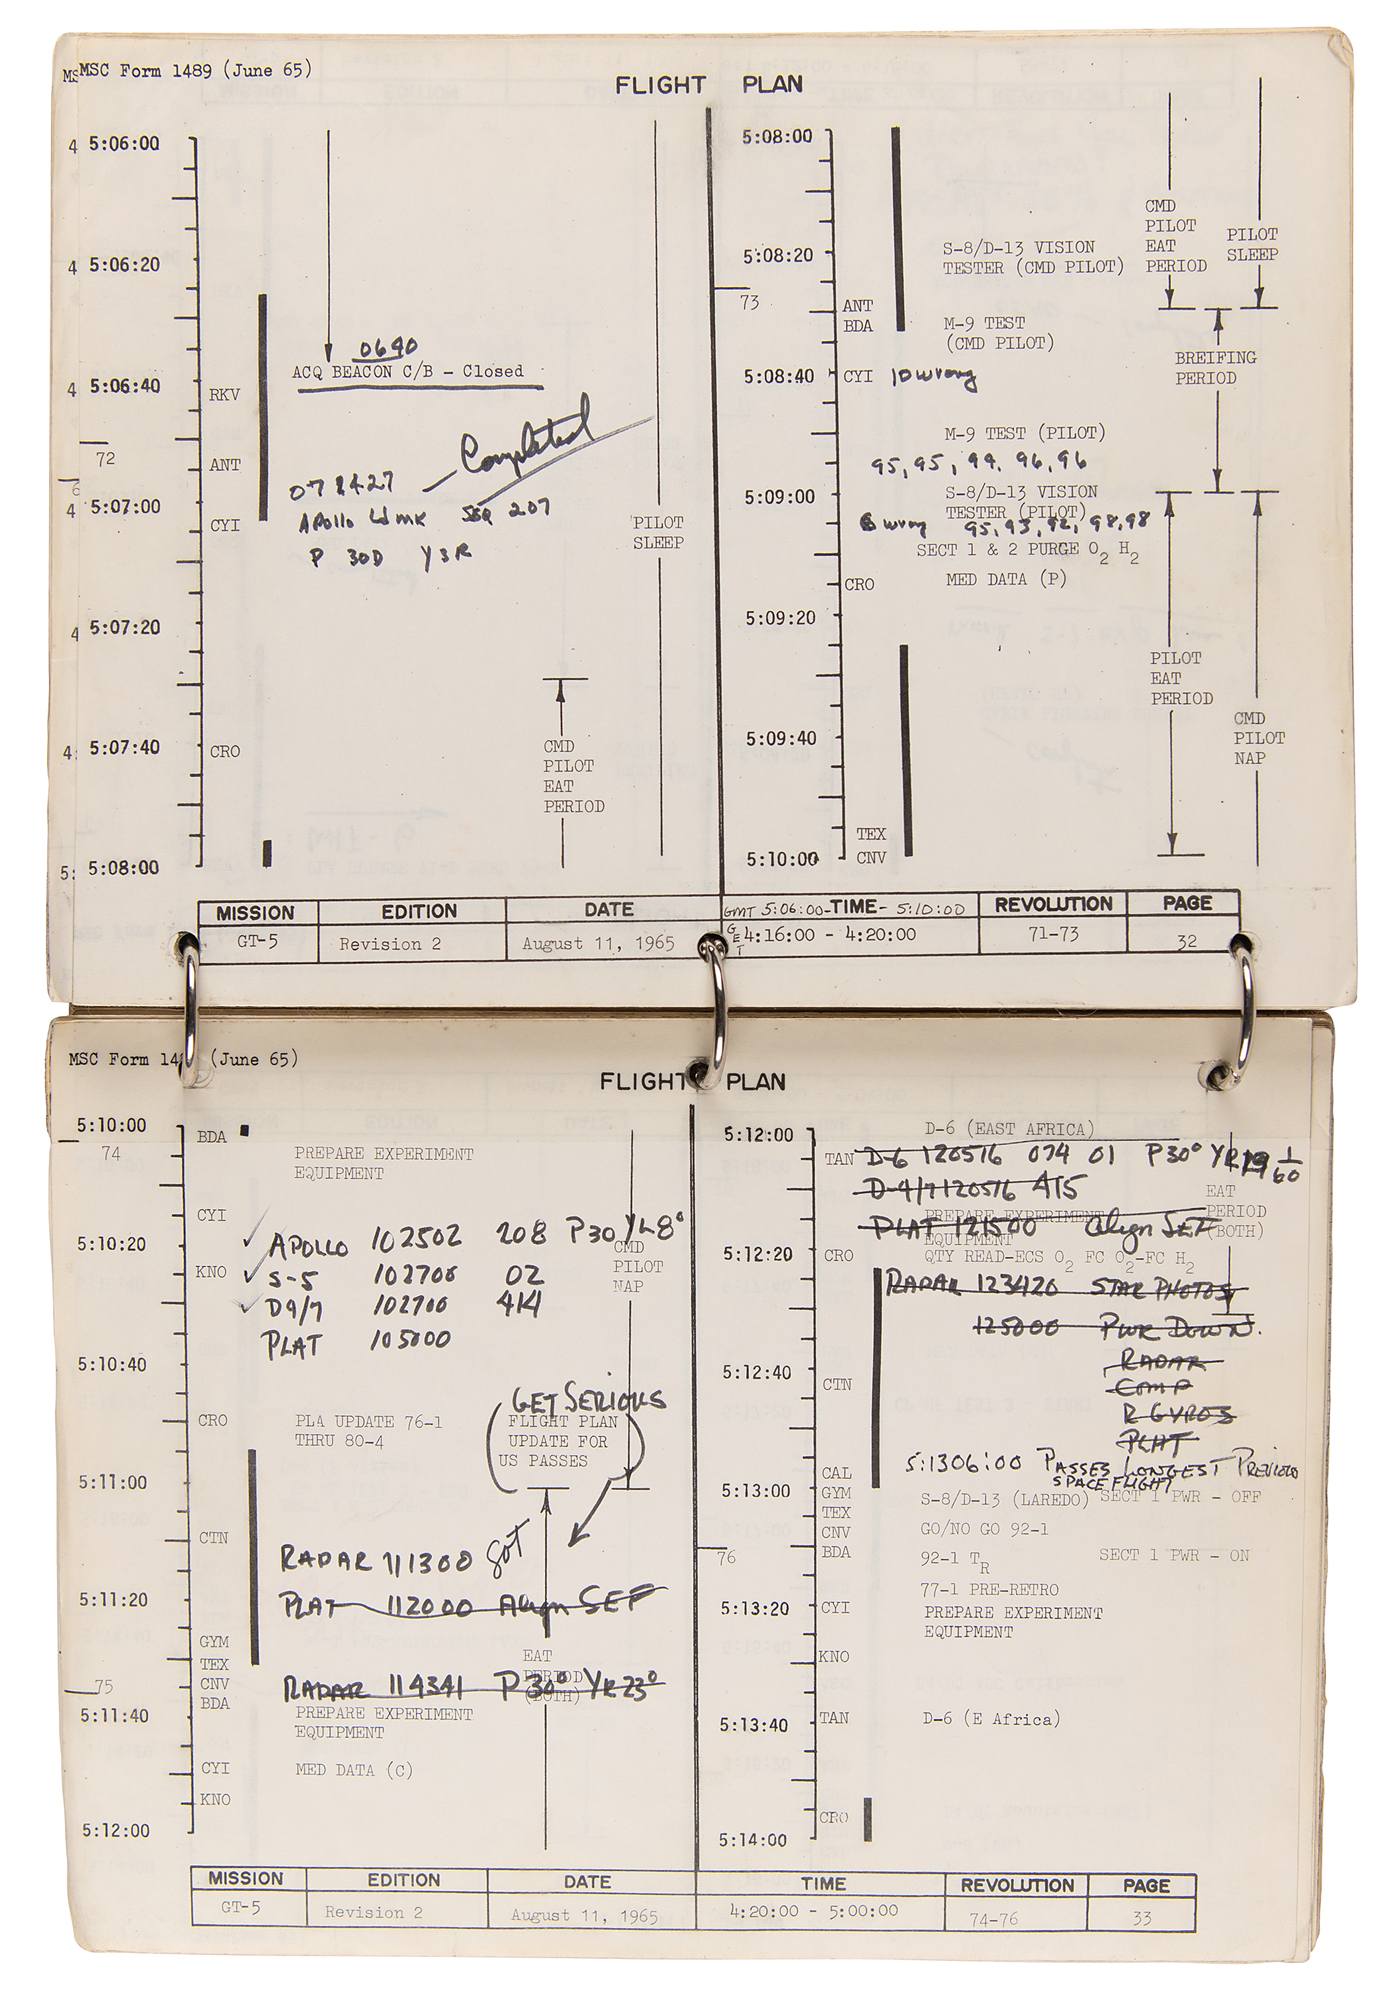 MSC Form 1489 (June 65)
FLIGHT PLAN
5:06:00
5:06:20
0640
ACQ BEACON C/B - Closed
5:06:40
RKV
72
ANT
Completed
071427
5:07:00
CYI
Apollo Ldmk SEQ 207
P 30D Y3R
PILOT
SLEEP
5:07:20
5:07:40
CRO
CMD
PILOT
EAT
PERIOD
5:08:00
5:08:00
CMD
PILOT
EAT
PERIOD
PILOT
SLEEP
5:08:20
S-8/D-13 VISION
TESTER (CMD PILOT)
73
ANT
BDA
M-9 TEST
(CMD PILOT)
BREIFING
PERIOD
5:08:40
CYI 10 wrong
M-9 TEST (PILOT)
95, 95, 94, 96, 96
5:09:00
S-8/D-13 VISION
TESTER (PILOT)
8 wrong 95, 93, 92, 98, 98
SECT 1 & 2 PURGE O2 H2
CRO
MED DATA (P)
5:09:20
PILOT
EAT
PERIOD
5:09:40
CMD
PILOT
NAP
TEX
5:10:00
CNV
MISSION EDITION DATE GMT 5:06:00-TIME- 5:10:00 REVOLUTION PAGE
GT-5 Revision 2 August 11, 1965 GET 4:16:00 - 4:20:00 71-73 32
MSC Form 148 (June 65)
FLIGHT PLAN
5:10:00
BDA
74
PREPARE EXPERIMENT
EQUIPMENT
CYI
5:10:20
APOLLO 102502 208 P30 YL8°
CMD
PILOT
NAP
KNO
S-5 102706 02
D9/7 102706 414
PLAT 105000
5:10:40
GET SERIOUS
CRO
PLA UPDATE 76-1
THRU 80-4
FLIGHT PLAN
UPDATE FOR
US PASSES
5:11:00
CTN
RADAR 111300 Got
5:11:20
PLAT 112000 Align SEF
GYM
TEX
EAT
PERIOD
(BOTH)
75
CNV
RADAR 114341 P 30° YR 23°
BDA
5:11:40
PREPARE EXPERIMENT
EQUIPMENT
CYI
MED DATA (C)
KNO
5:12:00
5:12:00
D-6 (EAST AFRICA)
TAN
D-6 120516 074 01 P30° YR 19 1/60
D-4/7 120516 A15
EAT
PERIOD
(BOTH)
PREPARE EXPERIMENT
EQUIPMENT
PLAT 121500 Align SEF
5:12:20
CRO
QTY READ-ECS O2 FC O2-FC H2
RADAR 123420 STAR PHOTOS
125000 PWR DOWN.
RADAR
5:12:40
CTN
COMP
R GYROS
PLAT
5:1306:00 PASSES LONGEST PREVIOUS
SPACE FLIGHT
CAL
5:13:00
GYM
S-8/D-13 (LAREDO) SECT 1 PWR - OFF
TEX
CNV
GO/NO GO 92-1
76
BDA
92-1 TR
SECT 1 PWR - ON
77-1 PRE-RETRO
5:13:20
CYI
PREPARE EXPERIMENT
EQUIPMENT
KNO
5:13:40
TAN
D-6 (E Africa)
CRO
5:14:00
MISSION EDITION DATE TIME REVOLUTION PAGE
GT-5 Revision 2 August 11, 1965 4:20:00 - 5:00:00 74-76 33